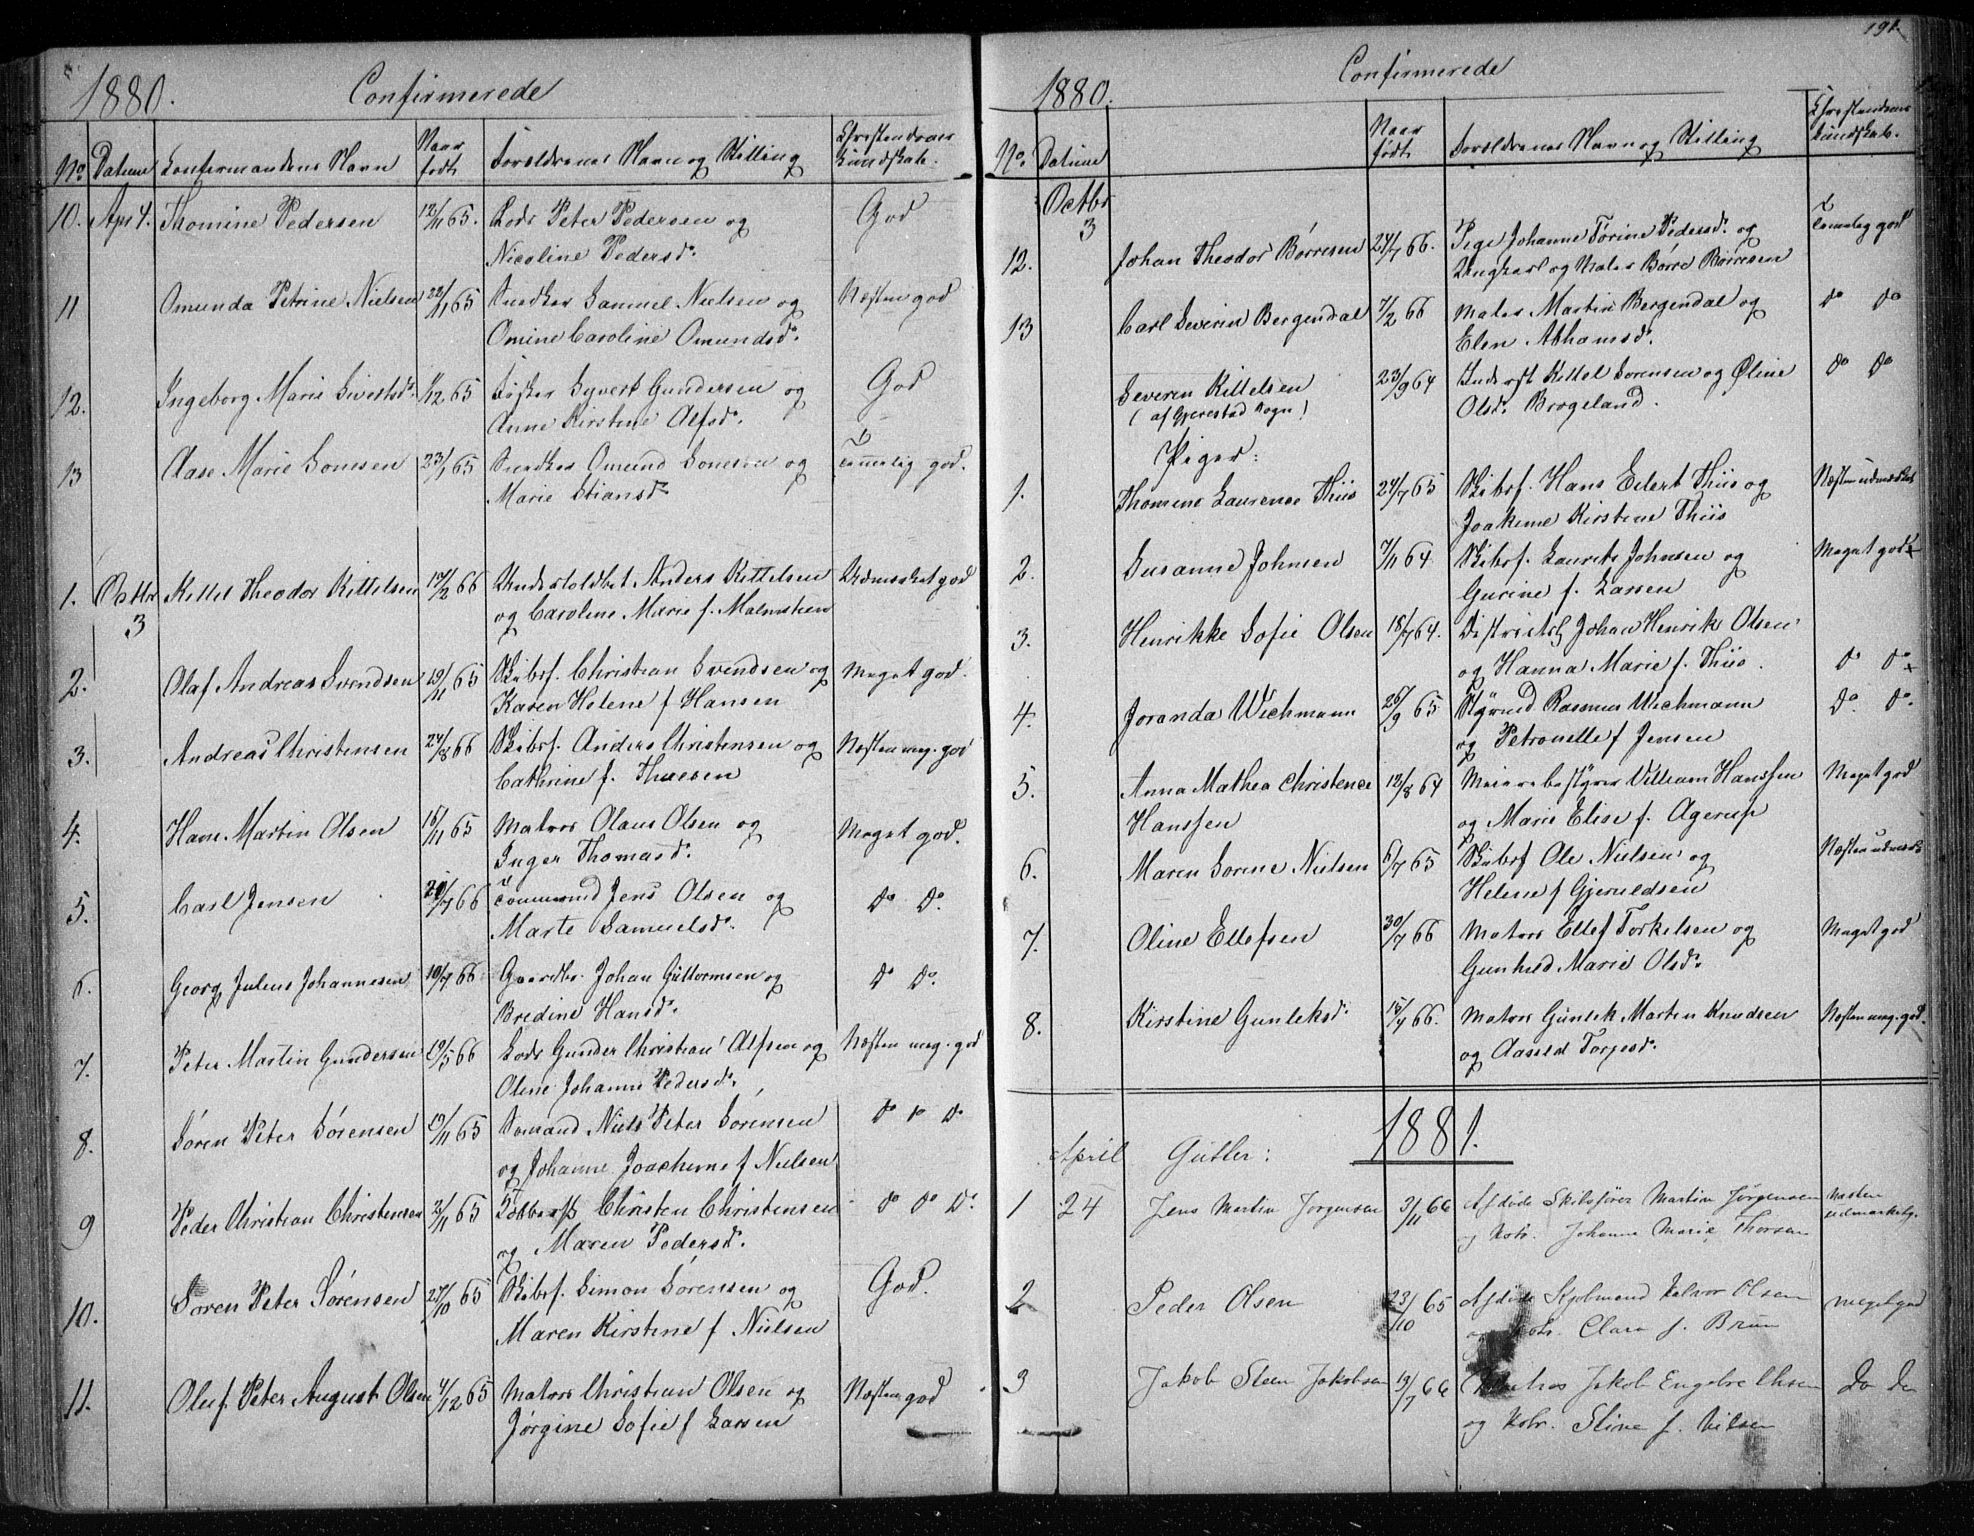 1880. Confirmerede
No. Datum Confirmandens Navn Naar født Foreldrenes Navn og Stilling Christendoms Kundskab.
10. Apr 4. Thomine Pedersen 12/11 65. Lods Peter Pedersen og God
Nicoline Pedersd.
11 Omunda Petrine Nielsen 22/1 65 Snedker Samuel Nielsen og Næsten god
Omine Caroline Omundsd.
12. Ingeborg Marie Sivertsd. 1/12 65 Fisker Syvert Gundersen og God
Anne Kirstine Alfsd.
13 Aase Marie Sonesen 23/1 65 Snedker Omund Sonesen og Temmelig god.
Marie Stiansd.
1. Octbr 3 Kittel Theodor Kittelsen 17/2 66 Undertoldbet Anders Kittelsen Udmerket god
og Caroline Marie f. Malmstien
2. Olaf Andreas Svendsen 19/11 65 Skibsf. Christian Svendsen og Meget god.
Karen Helene f Hansen
3. Andreas Christensen 24/8 66 Skibsf. Anders Christensen og Næsten meg. god
Cathrine f. Thuesen
4. Hans Martin Olsen 15/11 65 Matros Olaus Olsen og Meget god.
Inger Thomasd.
5. Carl Jensen 20/7 66 Tømmermd Jens Olsen og Do Do.
Marte Samuelsd.
6. Georg Julius Johannesen 10/7 66 Gaardbr. Johan Guttormsen og Do Do.
Bredine Hansd.
7. Peter Martin Gundersen 19/5 66 Lods Gunder Christian Alfsen og Næsten meg. god
Oline Johanne Pedersd.
8. Sören Peter Sörensen 19/11 65 Sømand Niels Peter Sørensen Do Do Do
og Johanne Joachime f Nielsen
9 Peder Christian Christensen 2/11 65 Christen Christensen Do Do Do.
og Maren Pedersd.
10. Soren Peter Sørensen 27/10 65 Skibsf. Simon Sørensen og God.
Maren Kirstine f Nielsen
11. Oluf Peter August Olsen 4/12 65 Matros Christian Olsen og Næsten god
Jørgine Sofie f Larsen
191.
1880. Confirmerede
No. Datum Naar født Foreldrenes Navn og Stilling Christendoms Kundskab.
Octbr 3
12. Johan Theodor Børresen 24/7 66. Pige Johanne Torine Pedersd. og Temmelig god
Ungkarl og Matros Børre Børresen
13 Carl Severin Bergendal 7/2 66 Matros Martin Bergendal og Do Do
Elen Abhamsd.
Severin Kittelsen 23/9 64 Inderst Kittel Sorensen og Øline Do Do
(af Gjerestad Sogn) Olsd. Brogeland.
Piger:
1. Thomine Laurence Thiis 24/7 65 Skibsf. Hans Eilert Thiis og Næsten udmerket
Joakime Kirstine Thiis
2. Susanne Johnsen 7/11 64 Skibsf. Laurits Johnsen og Meget god
Gurine f. Larsen
3. Henrikke Sofie Olsen 18/7 64. Johan Henrik Olsen
og Hanna Marie f. Thiis. Do Do
4. Joranda Wichmann 26/9 65 Styrmd Rasmus Wichmann Do. Do.
og Petronelle f Jensen
5. Anna Mathea Christence 12/8 64 Meieribestyrer Villiam Hanssen Meget god
Hanssen og Marie Elise f. Agerup
6. Maren Sorine Nielsen 6/7 65 Skibsf Ole Nielsen og Næsten udmerk
Helene f Gjeruldsen
7. Oline Ellefsen 30/7 66 Matros Ellef Torkelsen og Meget god
Gunhild Marie Olsd.
8. Kirstine Gunleksd. 15/7 66. Matros Gunlek Marten Knudsen Næsten meg. god.
og Aaseld Torjesd.
1881.
April Gutter:
1 24 Jens Martin Jørgensen 3/11 66 Afdøde Skibsfører Martin Jørgensen Næsten udmærket g.
og Kone. Johanne Marie Thorsen
2 Peder Olsen 23/10 65 Afdøde Olsen meget god
og Kone. Clara f. Bruun
3 Jakob Steen Jakobsen 19/7 66 Matros Jakob Engebrethsen Do Do
og Kone. Stine f. Nilsen